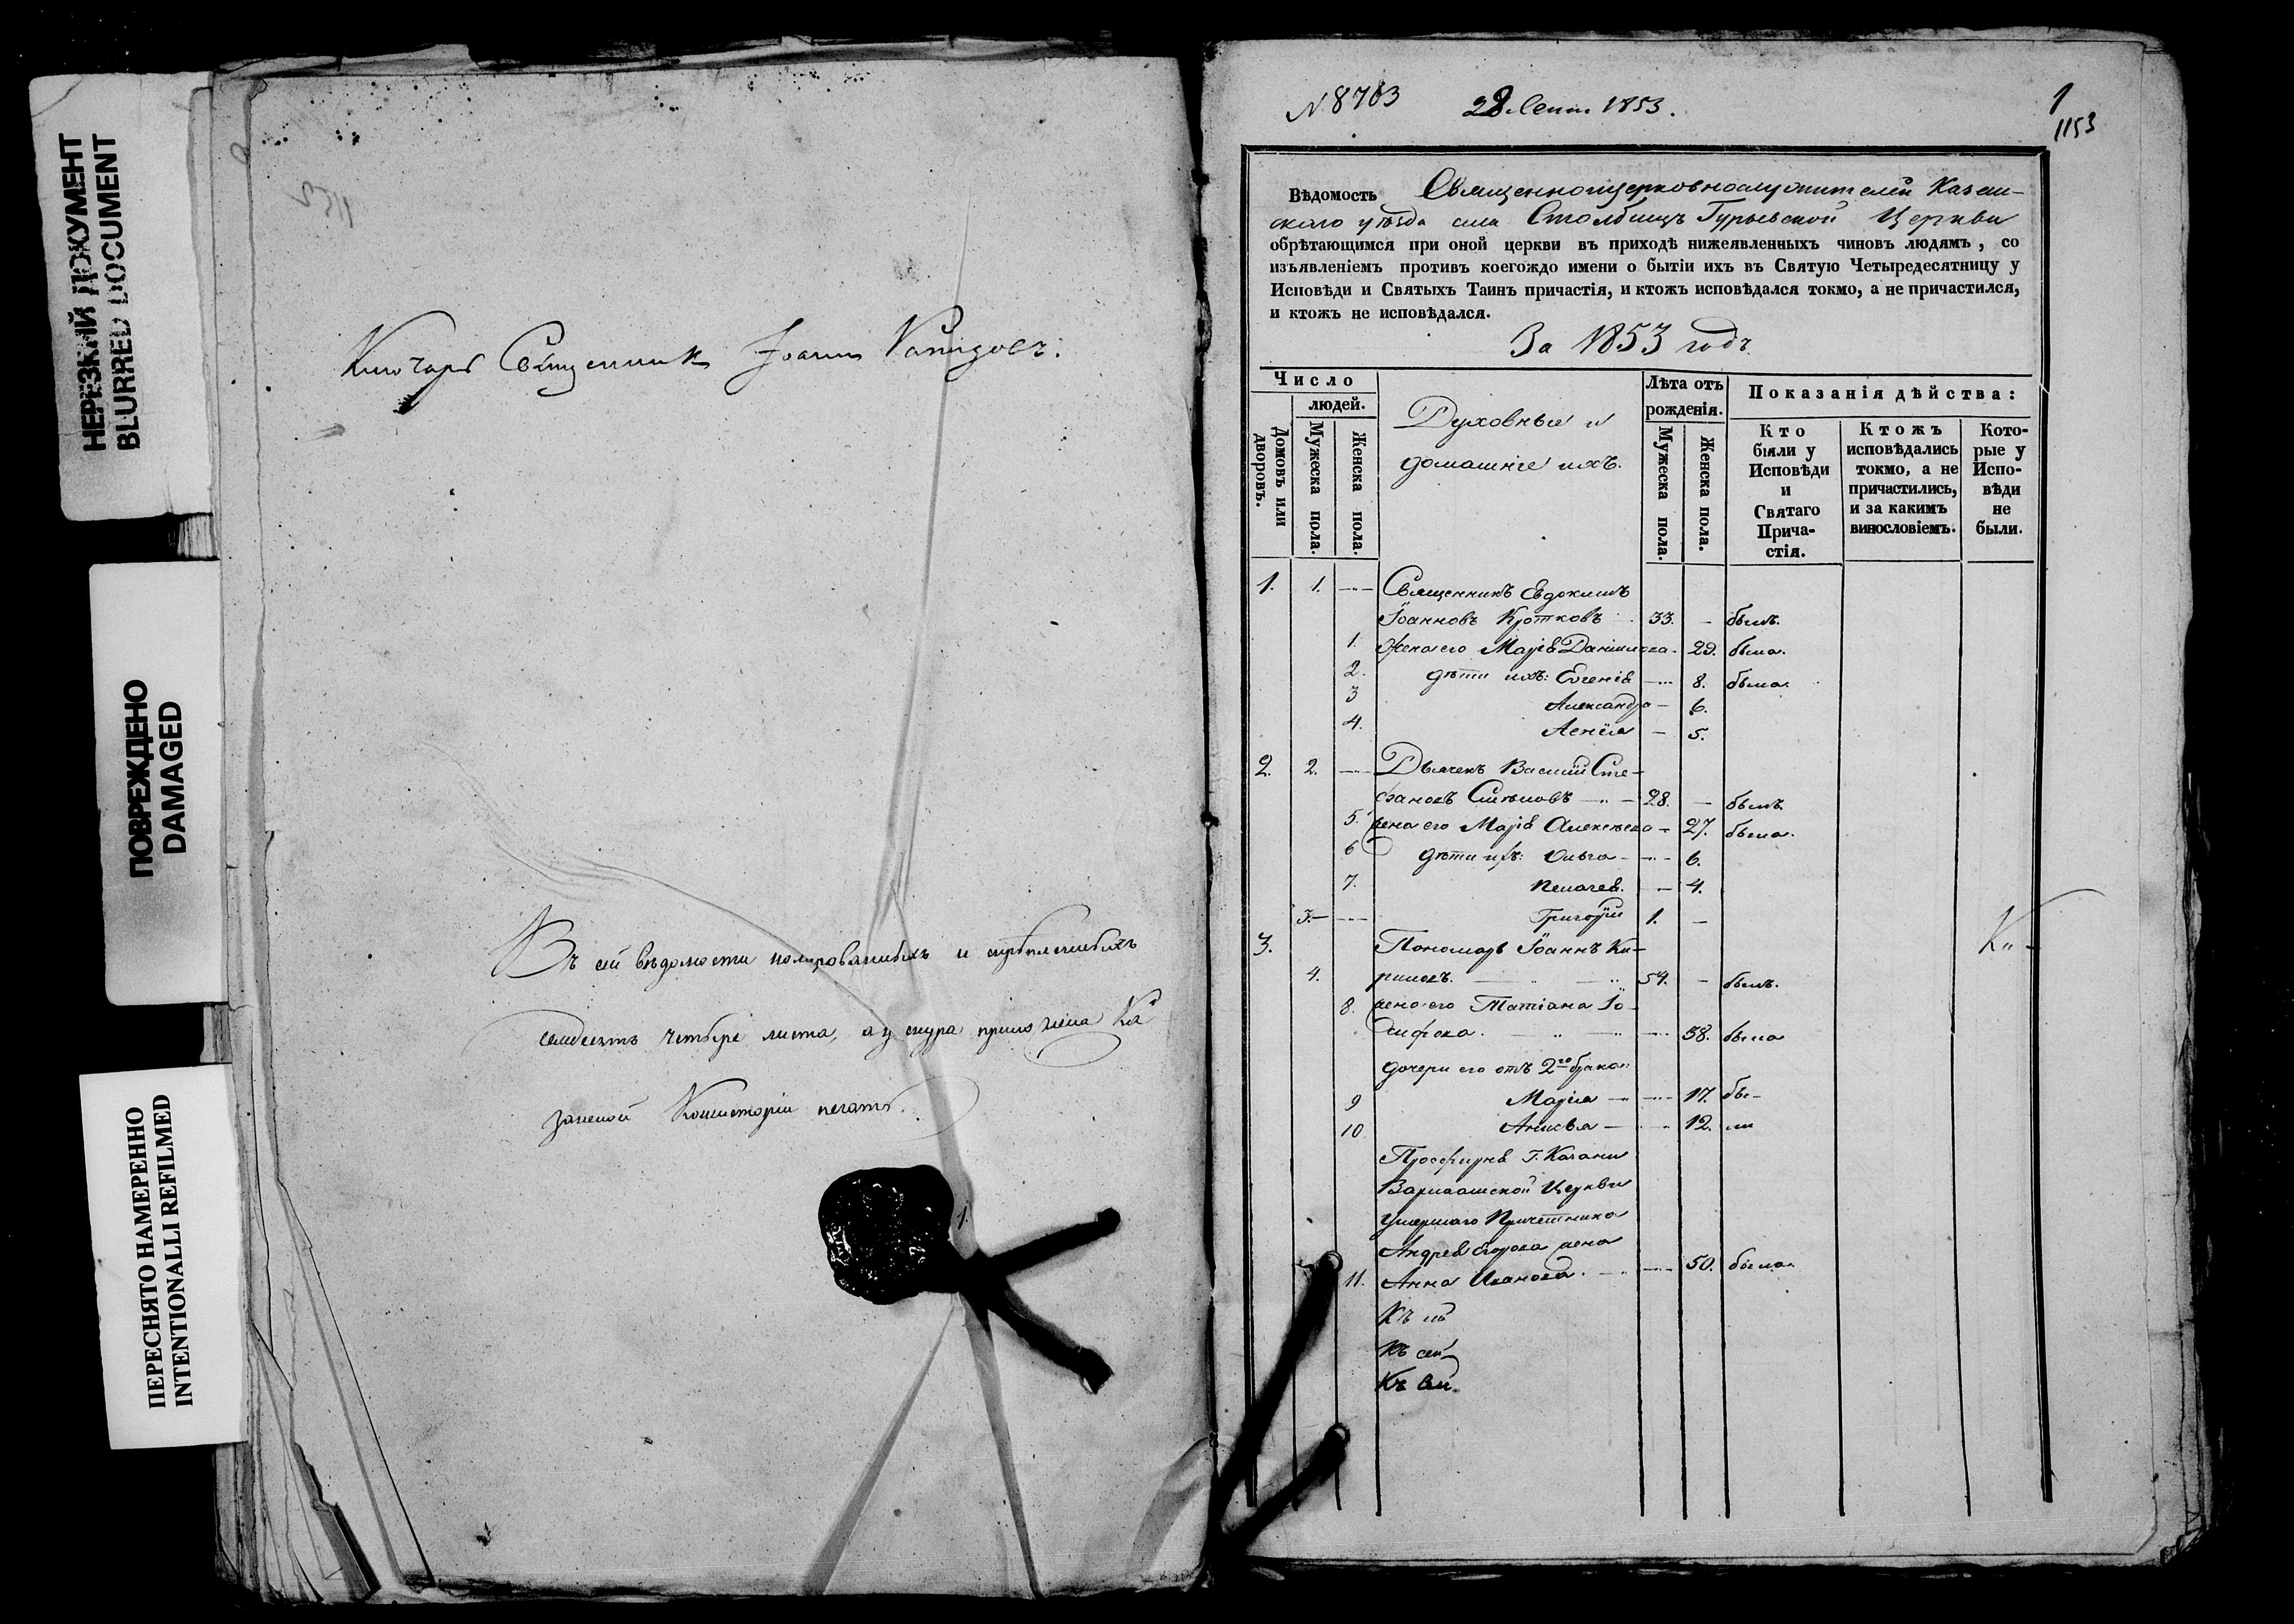 НЕРЕЗКИЙ ДОКУМЕНТ
BLURRED DOCUMENT
ПОВРЕЖДЕНО
DAMAGED
ПЕРЕСНЯТО НАМЕРЕННО
INTENTIONALLI REFILMED
Ключарь Священникъ Іоаннъ
Въ сей вѣдомости нумерованныхъ и скрѣпленныхъ
семдесятъ четыре листа, а у снура приложена Ка
занской Консисторіи печать.
1.
N. 8763 28 Сент. 1853.
1
1153
Вѣдомость Священноцерковнослужителей Казан-
скаго уѣзда села Столбищъ Гурьевской Церкви
обрѣтающимся при оной церкви въ приходѣ нижеявленныхъ чиновъ людямъ, со
изъявленіемъ противъ коегождо имени о бытіи ихъ въ Святую Четыредесятницу у
Исповѣди и Святыхъ Таинъ причастія, и ктожъ исповѣдался токмо, а не причастился,
и ктожъ не исповѣдался.
За 1853 годъ
Число
людей.
Домовъ или дворовъ.
Мужеска пола.
Женска пола.
Духовные и
домашніе ихъ.
Лѣта отъ
рожденія.
Мужеска пола.
Женска пола.
Показанія дѣйства:
Кто
были у
Исповѣди
и
Святаго
Прича-
стія.
Ктожъ
исповѣдались
токмо, а не
причастились,
и за какимъ
винословіемъ.
Кото-
рые у
Испо-
вѣди
не
были.
1. 1. — Священникъ Евдокимъ
Іоанновъ Кротковъ 33. — былъ.
1. Жена его Марія Даніилова. 29. была.
2. Дѣти ихъ: Евгенія — 8. была.
3 Александра — 6.
4. — 5.
2. 2. — Дьячекъ Василій Сте-
фановъ — 28. — былъ.
5. жена его Марія Алексѣева — 27. была.
6 Дѣти ихъ: Ольга — 6.
7. Пелагея. — 4.
3. — Григорій 1. —
3. Пономарь Іоаннъ Ки-
4. риловъ. 54. — былъ.
8. жена его Татіана Іо-
сифова. — 58. была
дочери его отъ 2го брака:
9 Марія — 17. бы-
10 Анисья — 12. ли
Просфирня Г. Казани
Варлаамской Церкви
умершаго Причетника
Андрея Егорова жена
11. Анна Иванова. — 50. была.
Къ
Къ сей
Къ сей
Ка-